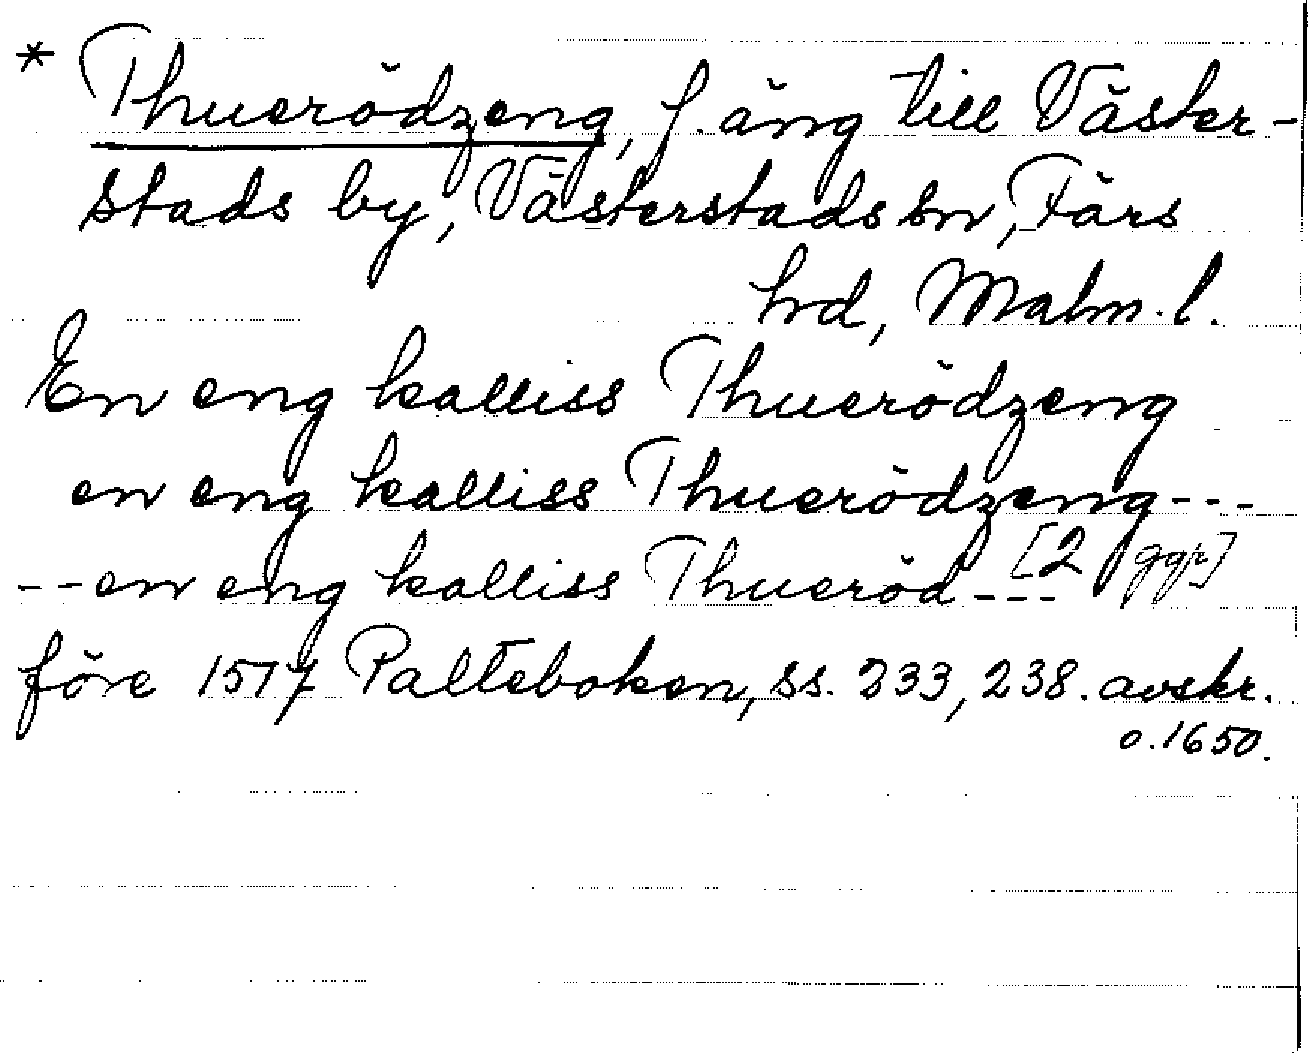 * Thuerödzeng, f. äng till Väster-
stads by, Västerstads sn, Färs
hd, Malm. l.
En eng kalliss Thuerödzeng
en eng kalliss Thuerödzeng---
--en eng kalliss Thueröd--- [2 ggr]
före 1517 Palteboken, ss. 233, 238. avskr.
o. 1650.